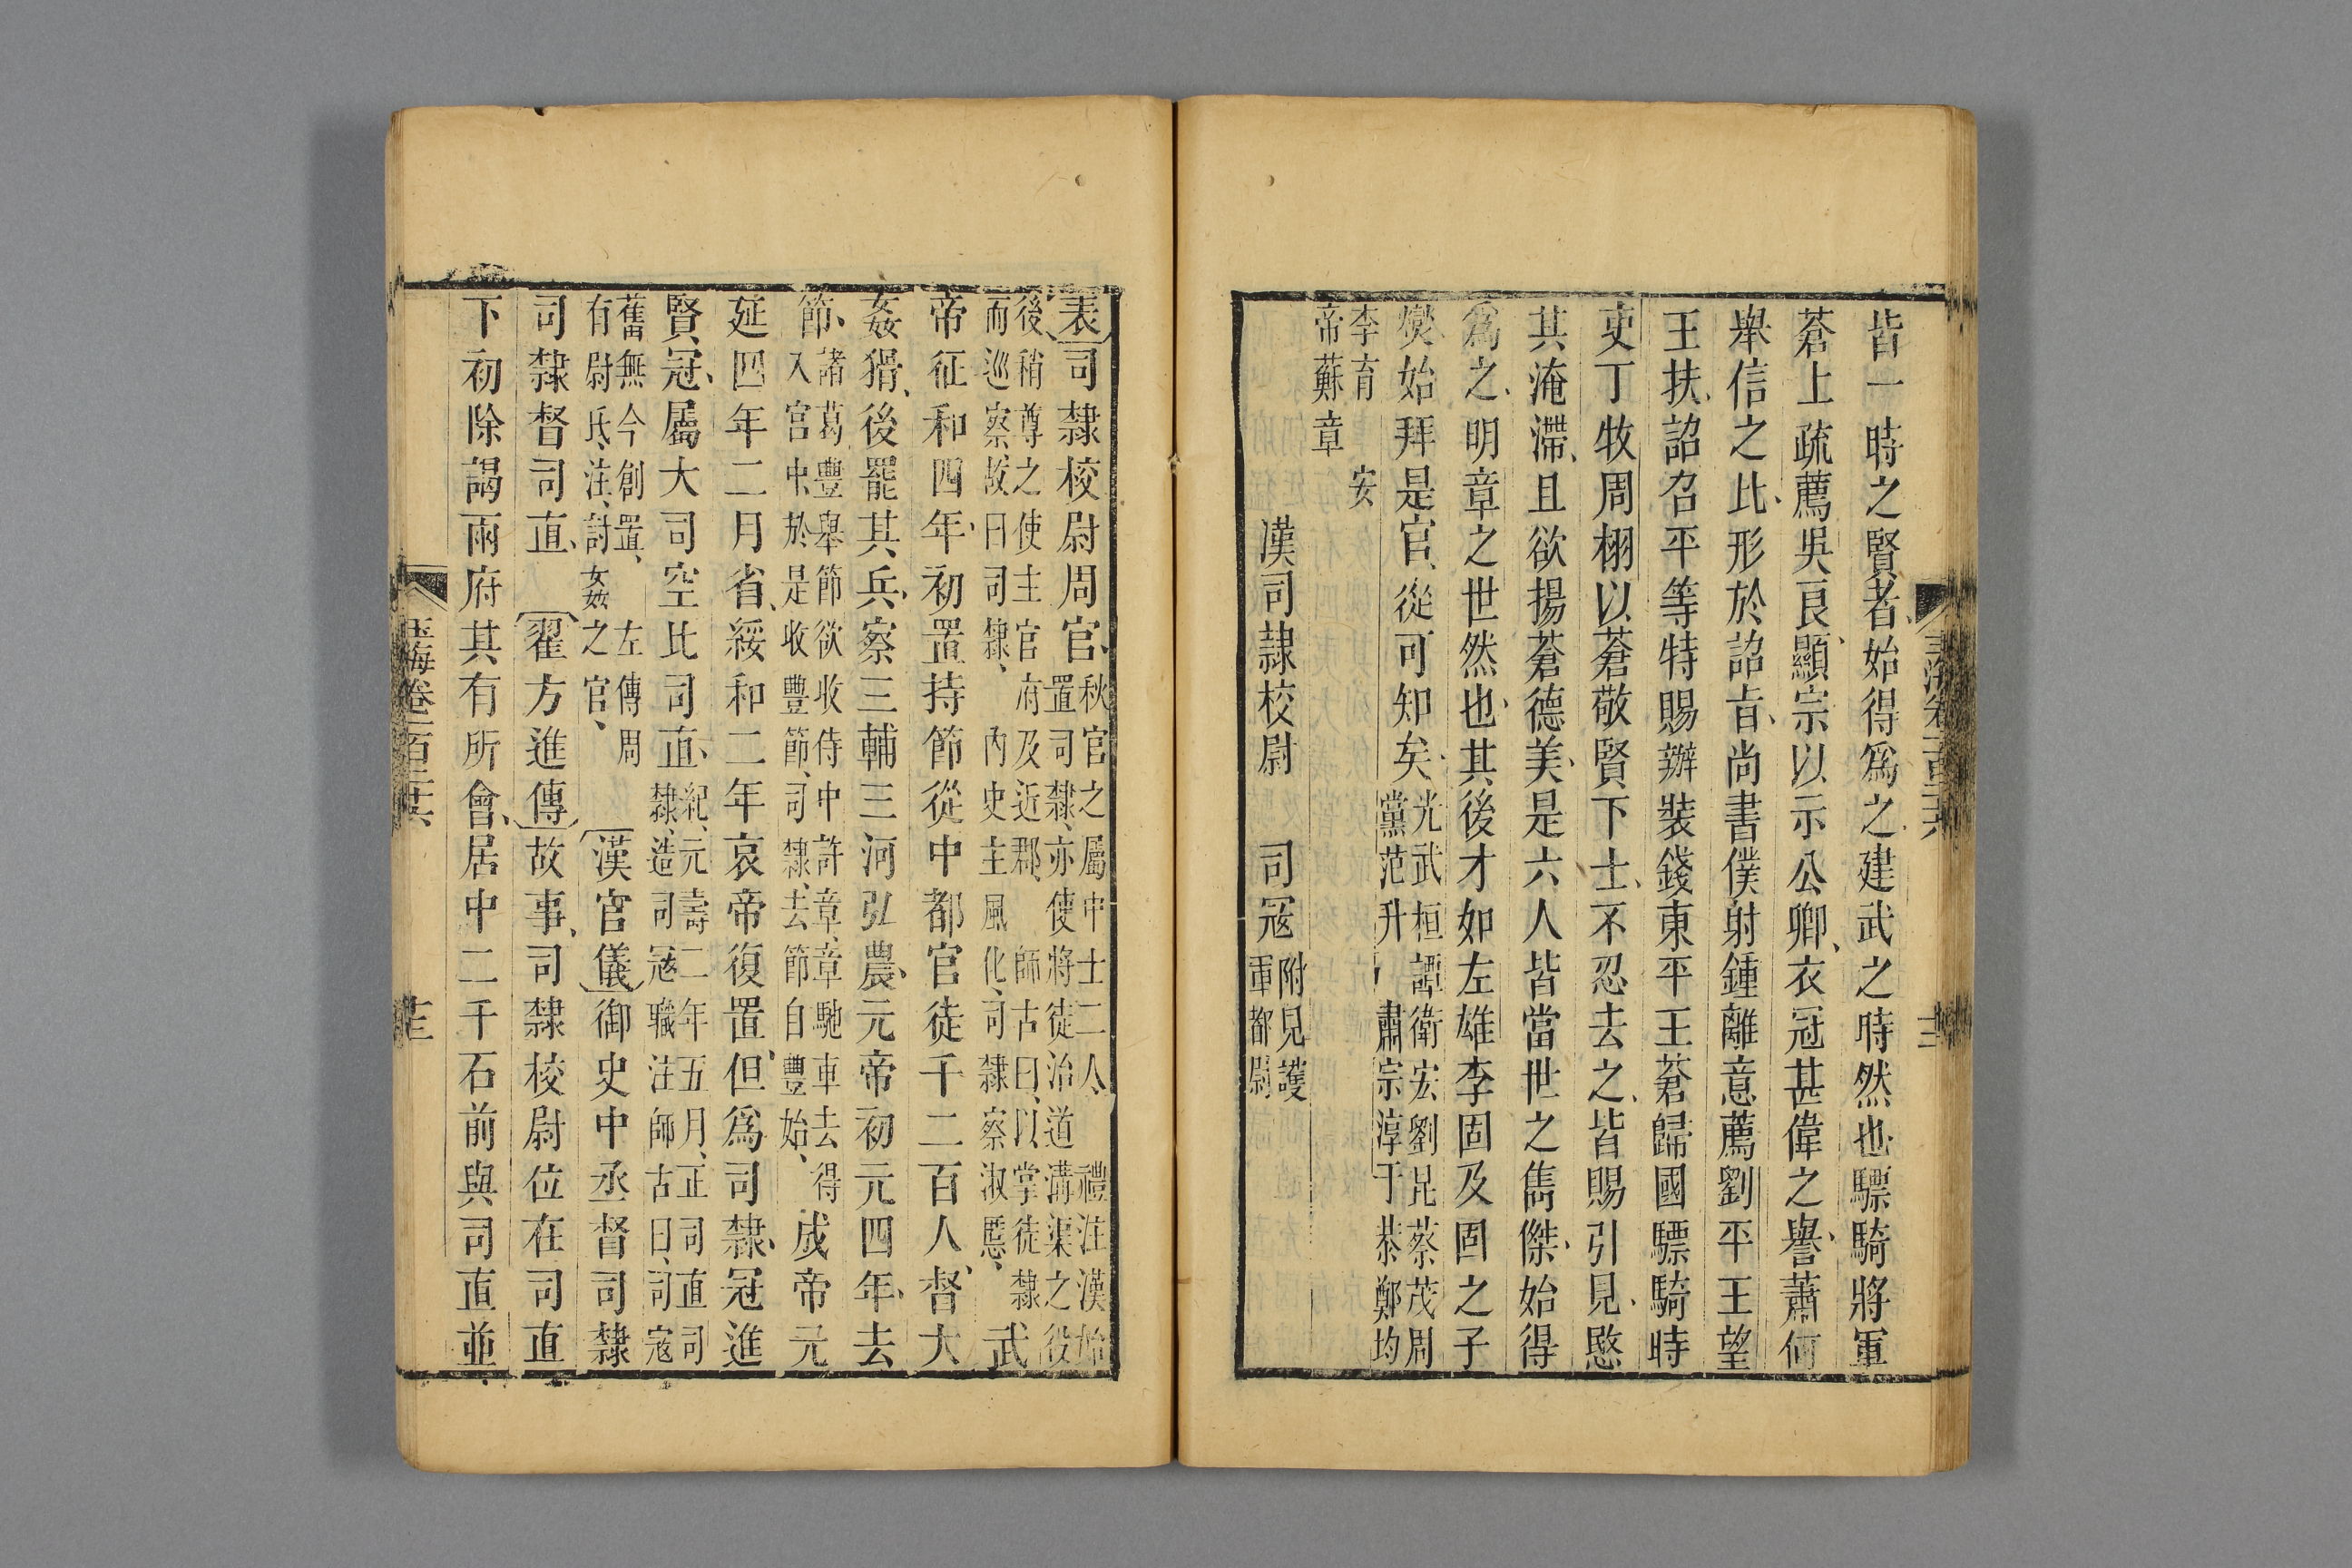 皆一時之賢者始得爲之建武之時然也驃騎將軍
蒼上疏薦吳良顯宗以示公卿衣冠甚偉之譽蕭何
舉信之比形於詔㫖尚書僕射鍾離意薦劉平王望
王扶詔召平等特賜辦裝錢東平王蒼歸國驃騎時
吏丁牧周栩以蒼敬賢下士不忍去之皆賜引見愍
其淹滯且欲揚蒼德美是六人皆當世之雋傑始得
爲之明章之世然也其後才如左雄李固及固之子
爕始拜是官從可知矣光武桓譚衛宏劉昆蔡茂周
黨范升 肅宗淳于恭鄭均
李育 安
帝蘇章
漢司隷校尉 司寇附見護
軍都尉
表司隷校尉周官秋官之屬中士二人 禮注漢始
置司隷亦使將徒治道溝渠之役
後稍尊之使主官府及近郡 師古曰以掌徒隷
而巡察故曰司隷 內史主風化司隷察淑慝武
帝征和四年初置持節從中都官徒千二百人督大
姦猾後罷其兵察三輔三河弘農元帝初元四年去
節諸葛豐舉節欲收侍中許章章馳車去得
入宮中於是收豐節司隷去節自豐始成帝元
延四年二月省綏和二年哀帝復置但爲司隷冠進
賢冠屬大司空比司直紀元壽二年五月正司直司
隷造司寇職注師古曰司寇
舊無今創置 左傳周
有尉氏注討姦之官漢官儀御史中丞督司隷
司隷督司直翟方進傳故事司隷校尉位在司直
下初除謁兩府其有所會居中二千石前與司直並
玉海卷一百三十六